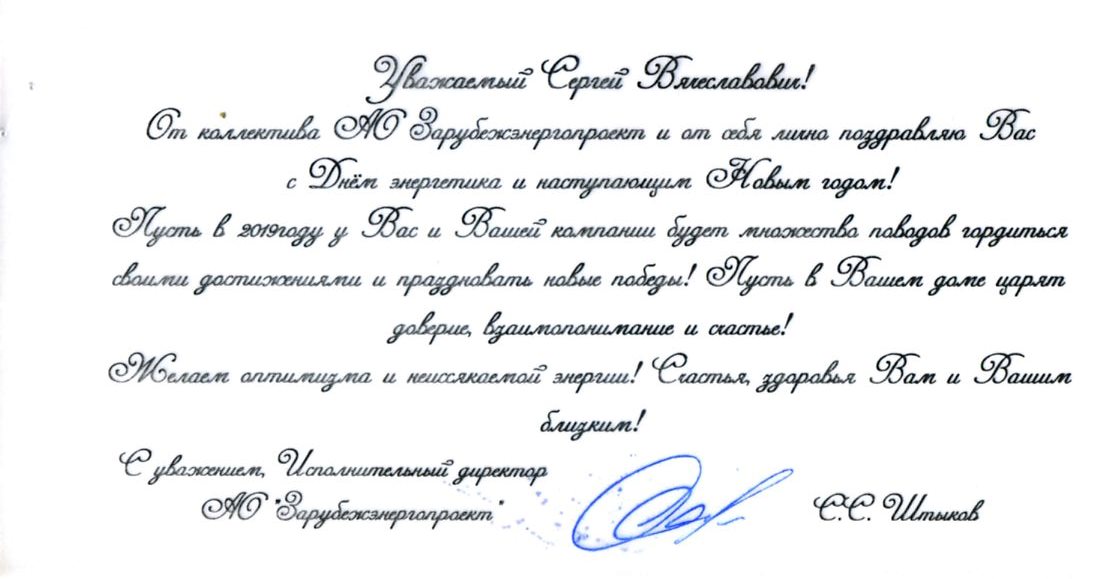 Уважаемый Сергей Вячеславович!
От коллектива АО Зарубежэнергопроект и от себя лично поздравляю Вас
с Днём энергетика и наступающим Новым годом!
Пусть в 2019году у Вас и Вашей компании будет множество поводов гордиться
своими достижениями и праздновать новые победы! Пусть в Вашем доме царят
доверие, взаимопонимание и счастье!
Желаем оптимизма и неиссякаемой энергии! Счастья, здоровья Вам и Вашим
близким!
С уважением, Исполнительный директор
АО "Зарубежэнергопроект"
С.С. Штыков